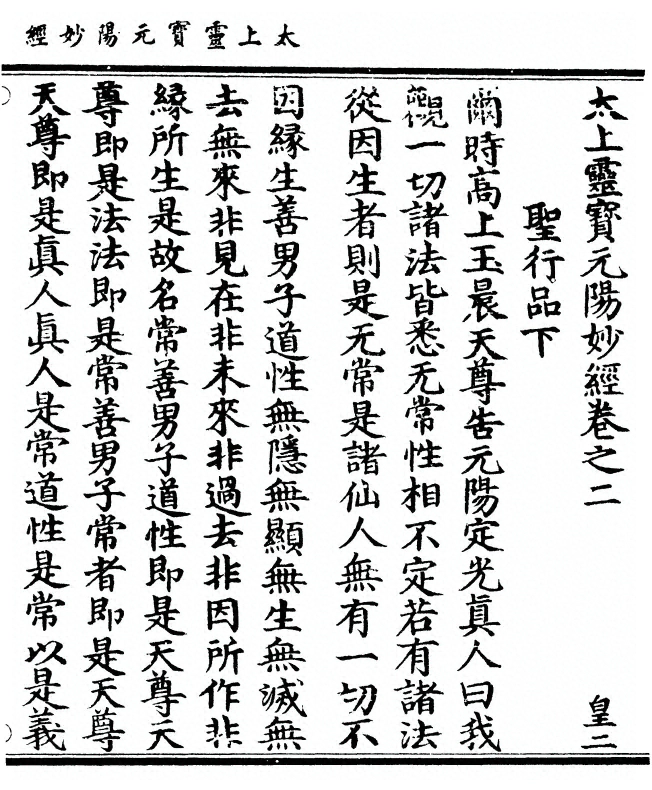 太上靈寶元陽妙經
太上靈寶元陽妙經卷之二
皇二
聖行品下
爾時高上玉晨天尊告元陽定光眞人曰我
觀一切諸法皆悉无常性相不定若有諸法
從因生者則是无常是諸仙人無有一切不
因縁生善男子道性無隱無顯無生無滅無
去無來非見在非未來非過去非因所作非
縁所生是故名常善男子道性即是天尊天
尊即是法法即是常善男子常者即是天尊
天尊即是眞人眞人是常道性是常以是義